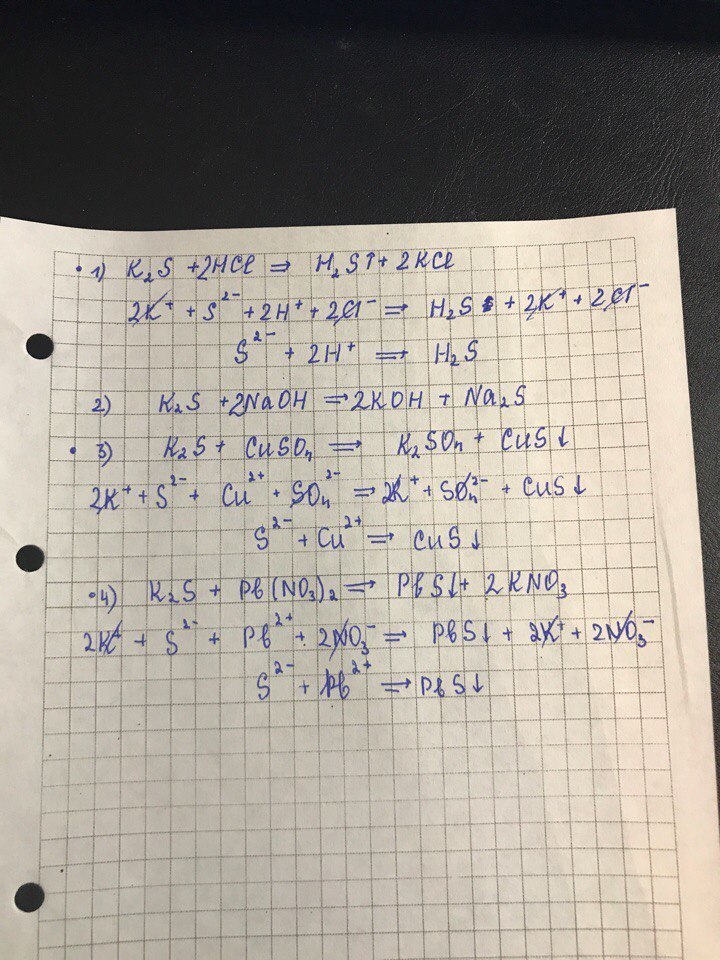 • 1) K₂S + 2HCl ⇒ H₂S↑ + 2KCl
2K⁺ + S²⁻ + 2H⁺ + 2Cl⁻ ⇒ H₂S + 2K⁺ + 2Cl⁻
S²⁻ + 2H⁺ ⇒ H₂S
2) K₂S + 2NaOH ⇒ 2KOH + Na₂S
• 3) K₂S + CuSO₄ ⇒ K₂SO₄ + CuS↓
2K⁺ + S²⁻ + Cu²⁺ + SO₄²⁻ ⇒ 2K⁺ + SO₄²⁻ + CuS↓
S²⁻ + Cu²⁺ ⇒ CuS↓
• 4) K₂S + Pb(NO₃)₂ ⇒ PbS↓ + 2KNO₃
2K⁺ + S²⁻ + Pb²⁺ + 2NO₃⁻ ⇒ PbS↓ + 2K⁺ + 2NO₃⁻
S²⁻ + Pb²⁺ ⇒ PbS↓